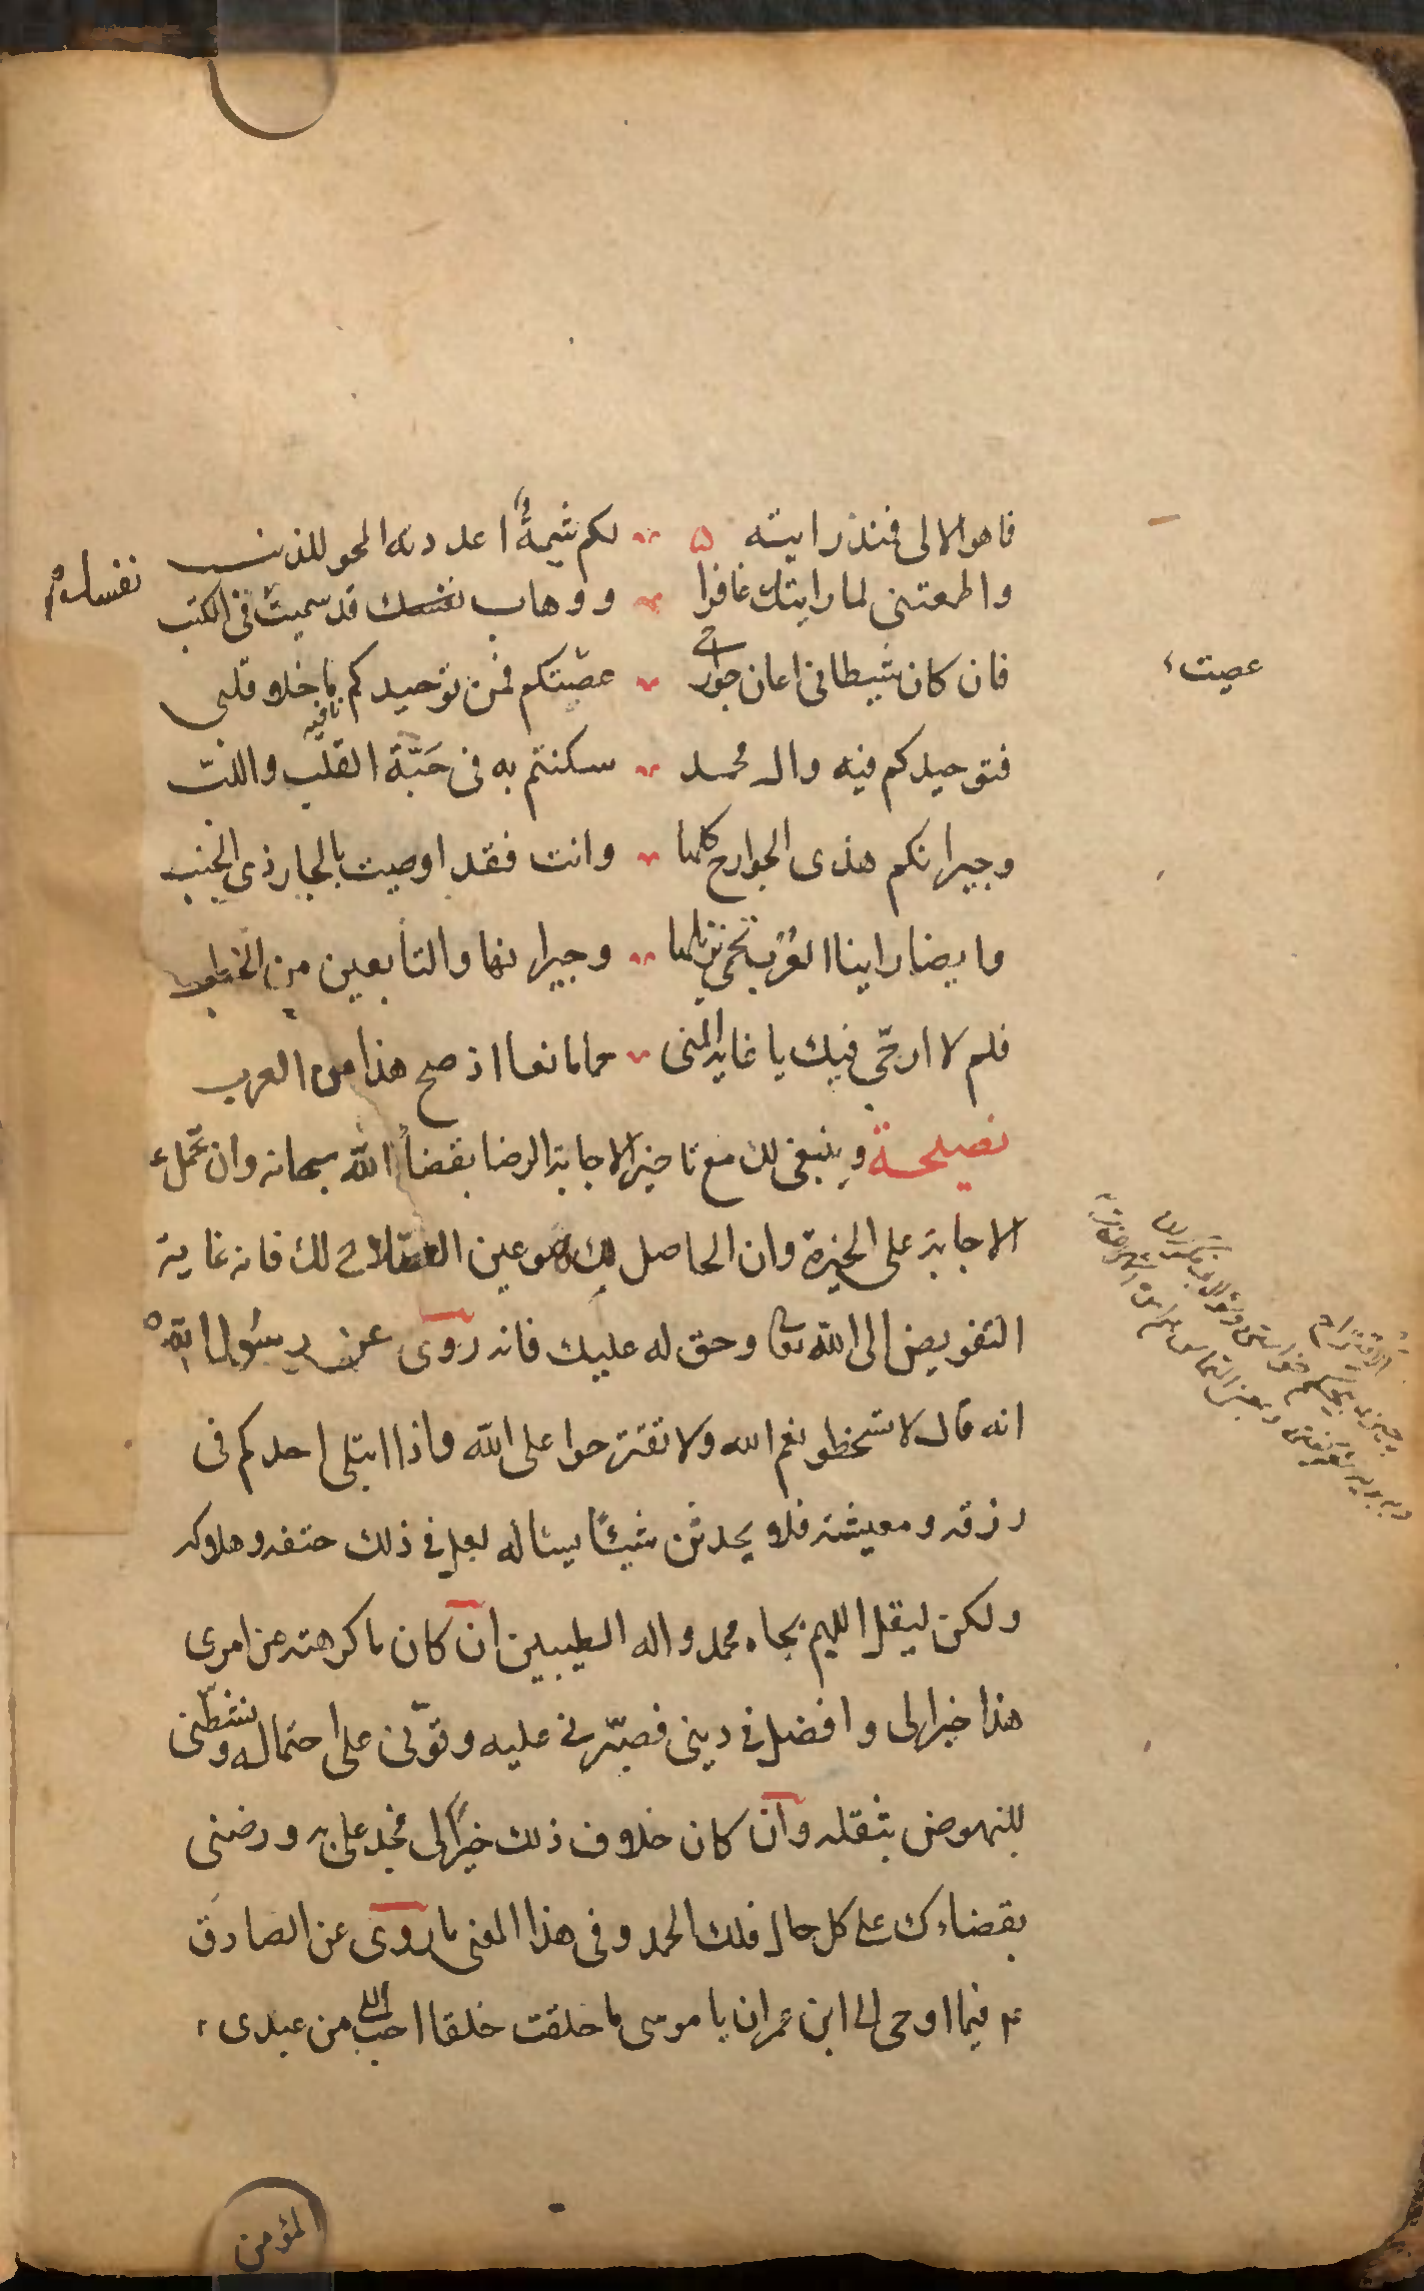 فاهو الا لى فمنذ رايته ۵ لكم شيمةً اعددته المحو للذنب
واطمعتنى لما رايتك غافرا ووهاب نفسك قد سميت فى الكتب
نفسك
فان كان شيطانى اعان جوارحى عصتكم فمن توحيدكم ما خلا قلبى
عصيت
فتوحيدكم فيه وال محمد سكنتم به فى حَبّة القلب واللبّ
وجيرانكم هذى الجوارح كلها وانت فقد اوصيت بالجار ذى الجنب
وايضا راينا العُرب تحمى نزيلها وجيرانها والتابعين من الخطب
فلم لا ارجّى فيك يا غاية المنى حما مانعا اذ صح هذا من العرب
نصيحة وينبغى لك مع تاخير الاجابة الرضا بقضاء الله سبحانه وان تحمل
الاجابة على الخيرة وان الحاصل لك هو عين الصّلاح لك فانه غاية
التفويض الى الله تعا وحق له عليك فانه روى عن رسول الله ص
انه قال لا تسخطو نعم الله ولا تقترحوا على الله واذا ابتلى احدكم فى
رزقه ومعيشته فلا يحدثن شيئًا يساله لعل فى ذلك حتفه وهلاكه
ولكن ليقل اللهم بجاه محمد واله الطيبين ان كان ما كرهته من امرى
هذا خيرا لى وافضل فى دينى فصبّرنى عليه وقوّنى على احتماله ونشّطنى
للنهوض بثقله وان كان خلاف ذلك خيرًا لى فجد على به ورضنى
بقضاءك على كل حال فلك الحمد وفى هذا المعنى ما روى عن الصادق
ع فيما اوحى الى ابن عمران يا موسى ما خلقت خلقا احب الىّ من عبدى
المؤمن